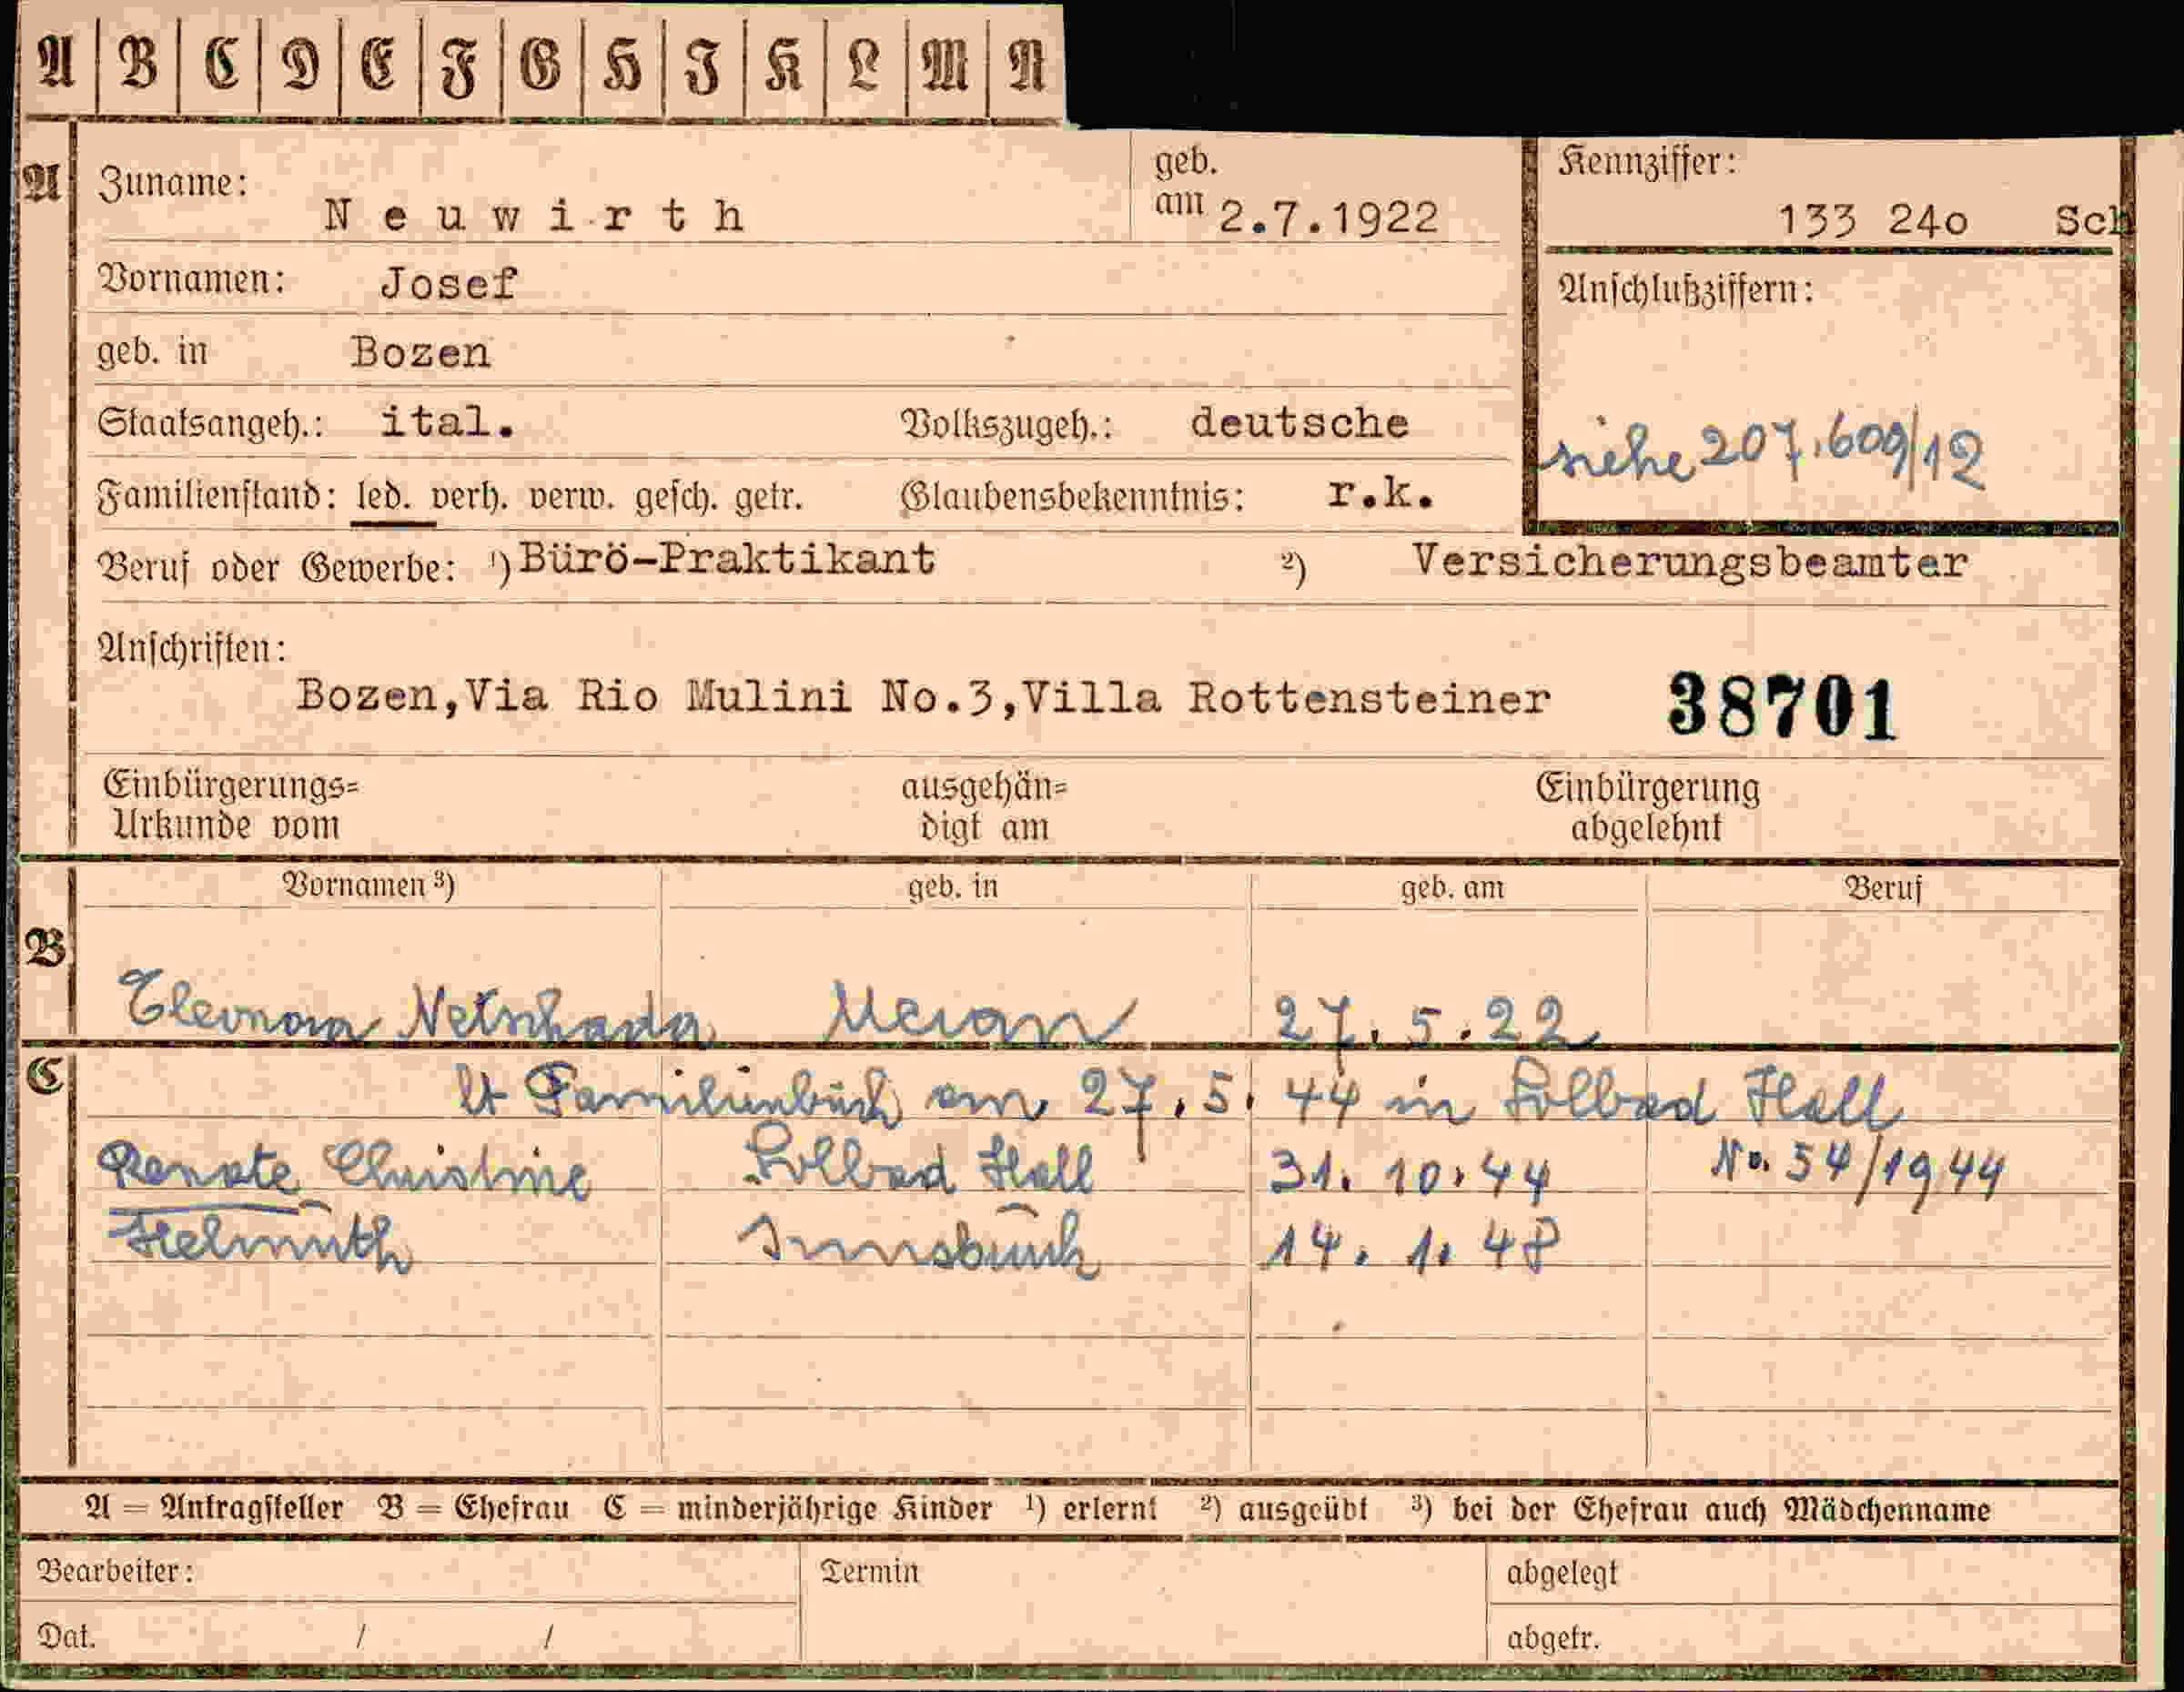 A B C D E F G H I K L M N
A
Zuname: Neuwirth geb. am 2.7.1922
Kennziffer: 133 24o Sch
Vornamen: Josef
Anschlußziffern:
geb. in Bozen
Staatsangeh.: ital. Volkszugeh.: deutsche
siehe 207.609/12
Familienstand: led. verh. verw. gesch. getr. Glaubensbekenntnis: r.k.
Beruf oder Gewerbe: 1) Bürö-Praktikant 2) Versicherungsbeamter
Anschriften:
Bozen,Via Rio Mulini No.3,Villa Rottensteiner 38701
Einbürgerungs= ausgehän= Einbürgerung
Urkunde vom digt am abgelehnt
Vornamen 3) geb. in geb. am Beruf
B
Eleonora Meran 27.5.22
C
lt Familienbuch am 27.5.44 in Solbad Hall
Renate Christine Solbad Hall 31.10.44 No. 54/1944
Helmuth Innsbruck 14.1.48
A = Antragsteller B = Ehefrau C = minderjährige Kinder 1) erlernt 2) ausgeübt 3) bei der Ehefrau auch Mädchenname
Bearbeiter: Termin abgelegt
Dat. / / abgetr.